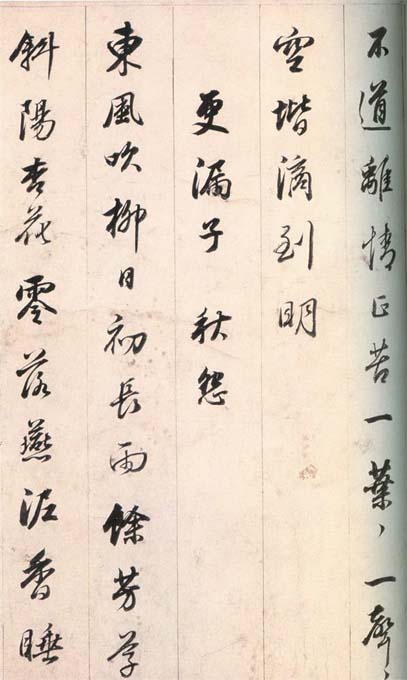 不道離情正苦一葉〻一聲〻
空堦滴到明
更漏子 秋怨
東風吹柳日初長雨餘芳草
斜陽杏花零落燕泥香睡